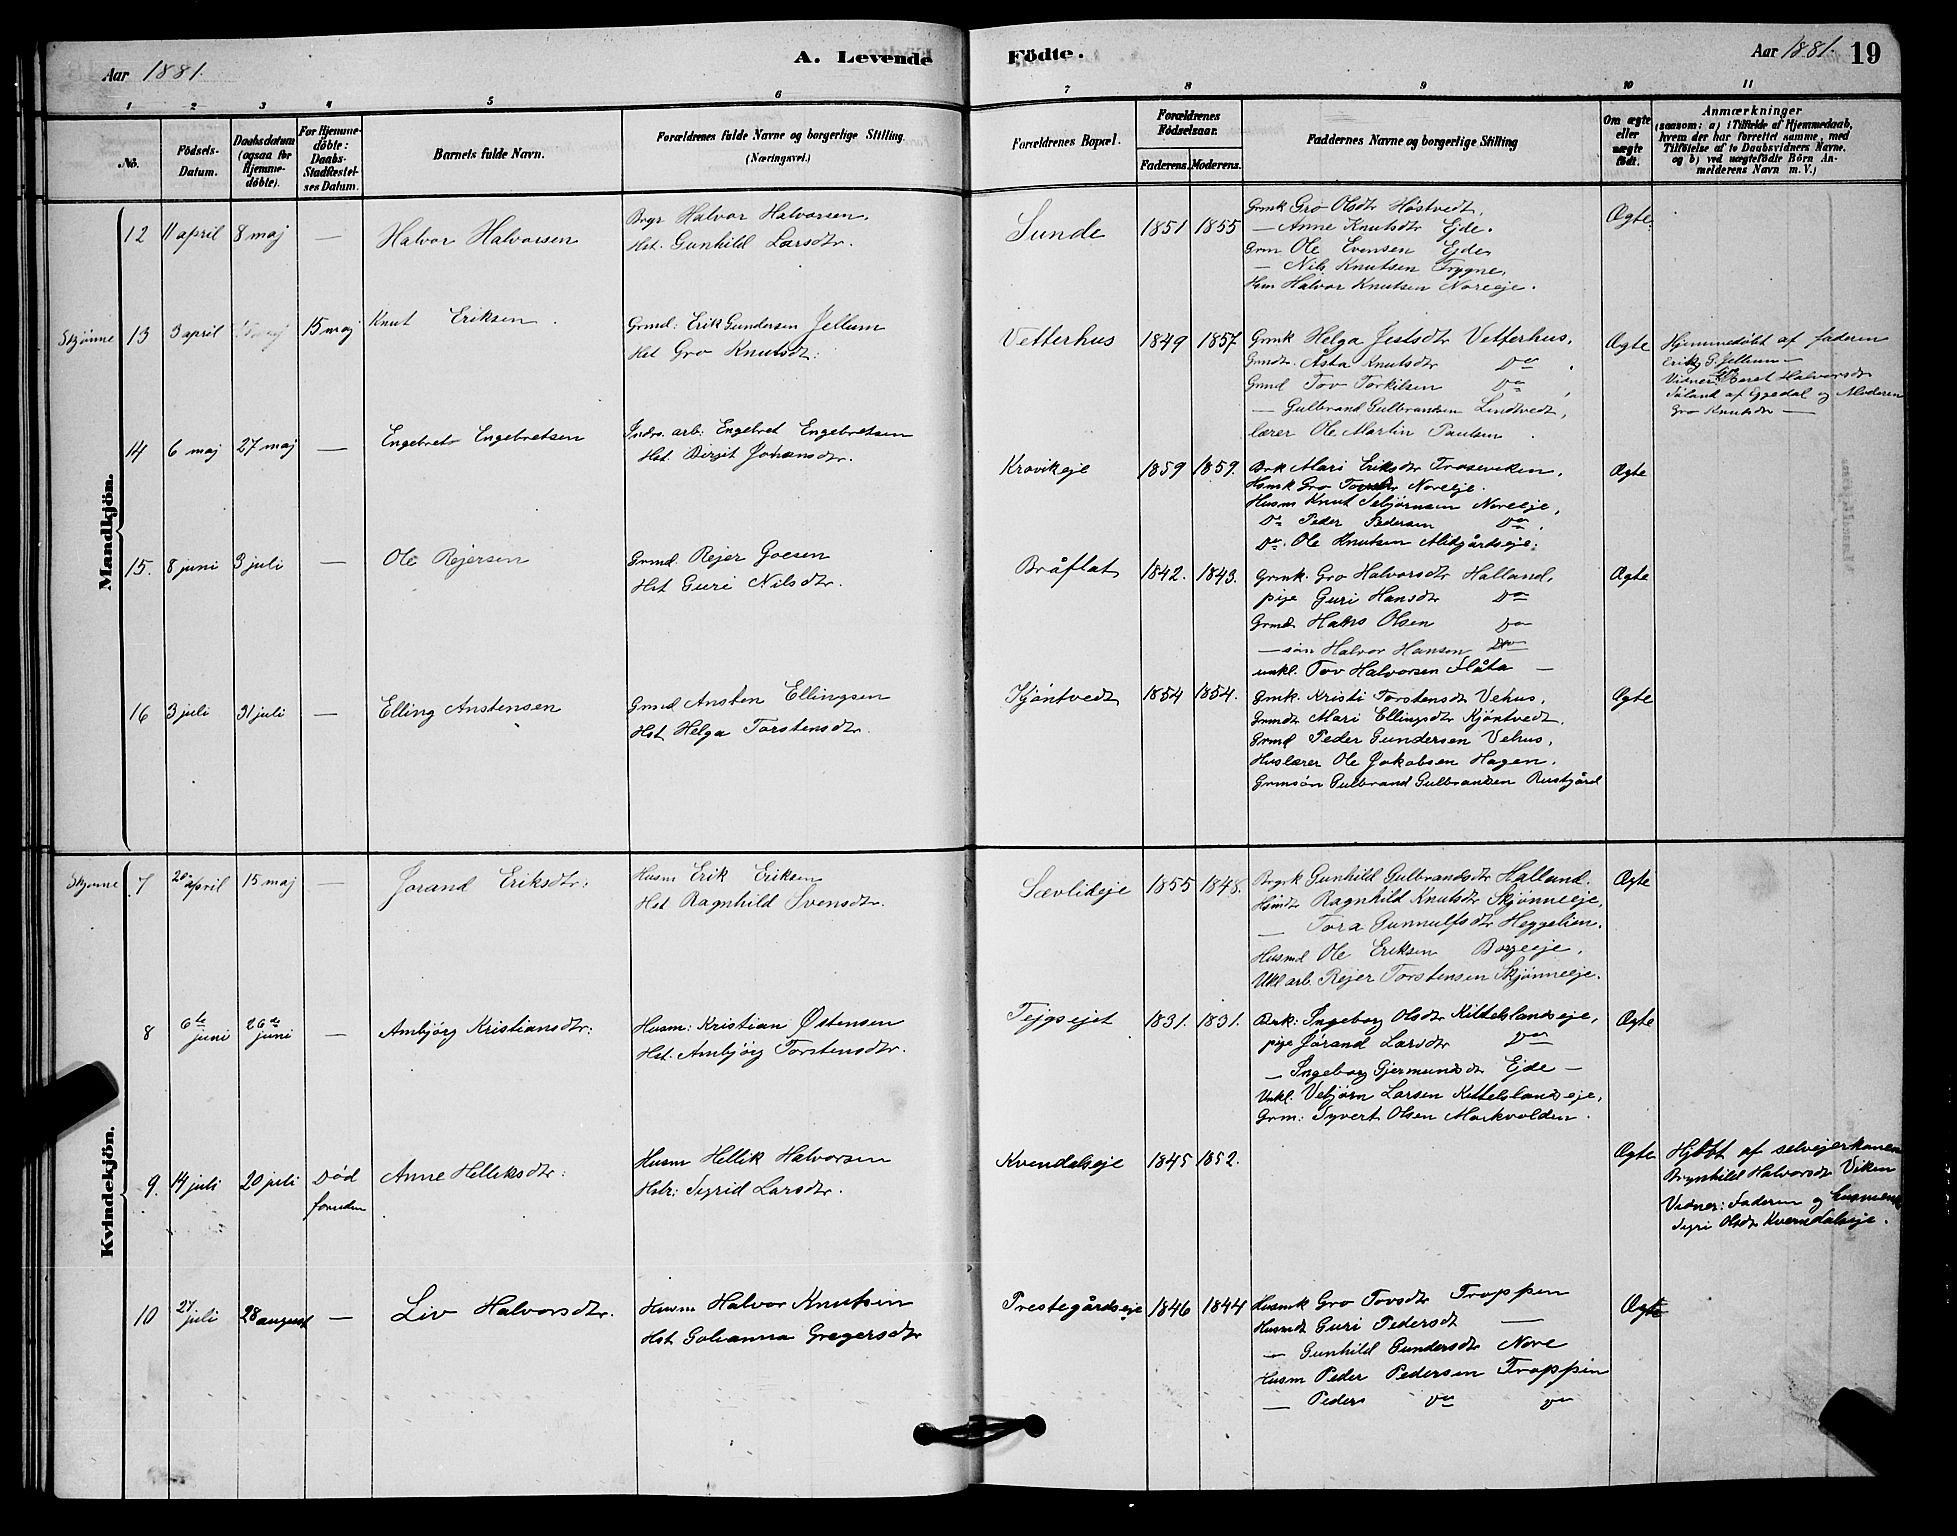 Aar 1881.
A. Levende Födte.
Aar 1881. 19
1 2 3 4 5 6 7 8 9 10 11
No.
Födsels-Datum.
Daabsdatum (ogsaa for Hjemme-döbte).
For Hjemme-döbte: Daabs-Stadfæstel-ses Datum.
Barnets fulde Navn.
Forældrenes fulde Navne og borgerlige Stilling.
(Næringsvei.)
Forældrenes Bopæl.
Forældrenes Födselsaar.
Faderens. Moderens.
Faddernes Navne og borgerlige Stilling
Om ægte eller uægte födt.
Anmærkninger
(saasom: a) i Tilfælde af Hjemmedaab, hvem der har forrettet samme, med Tilföielse af to Daabsvidners Navne, og b) ved uægtefödte Börn An-melderens Navn m. V.)
Mandkjön.
12 11 april 8 maj — Halvor Halvorsen
Bryr Halvor Halvorsen.
Hst. Gunhild Larsdtr.
Sunde 1851 1855
Grmk Gro Olsdtr Höstvedt,
— Anne Knutsdtr Ejde.
Grm Ole Evensen Ejde
— Nils Knutsen Frygne,
Hsm Halvor Knutsen Noreeje.
Ægte
Skjönne 13 3 april 15 maj Knut Eriksen.
Grmd: Erik Gundersen Jellum
Hst Gro Knutsdt:
Vetterhus 1849 1857.
Grmk Helga Jestsdtr Vetterhus,
Grmdtr Åsta Knutsdtr Do.
Grmd Tov Torkilsen Do,
— Gulbrand Gulbrandsen Lindtvedt,
lærer Ole Martin Paulsen.
Ægte
Hjemmedöbt af faderen
Erik G. Jellum —
Vidner Beret Halvorsdtr
Såland af Eggedal og Moderen
Gro Knutsdtr —
14 6 maj 27 maj — Engebret Engebretsen
Indrs. arb: Engebret Engebretsen
Hst. Birgit Johansdtr.
Kravikeje 1859 1859.
Brk Mari Eriksdtr Froseviken,
Hsmk Gro Noreeje.
Husm Knut Tebjörnsen Noreeje,
Do Peder Pedersen Do,
Do. Ole Knutsen Alidgårdseje.
Ægte
15. 8 juni 3 juli — Ole Rejersen
Grmd. Rejer Goesen
Hst Guri Nilsdtr.
Bråflat 1842. 1843.
Grmk. Gro Halvorsdtr Halland,
pige Guri Hansdtr Do
Grmd Hans Olsen Do
— sön Halvor Hansen Do
unkl. Tov Halvorsen Flåta —
Ægte
16 3 juli 31 juli — Elling Anstensen
Grmd Ansten Ellingsen
Hst. Helga Torstensdtr.
Kjöntvedt 1854 1854.
Grmk. Kristi Torstensdt Vehus,
Grmdtr Mari Ellingsdtr Kjöntvedt,
Grmd Peder Gundersen Vehus,
Huslærer Ole Jakobsen Hagen,
Grmsön Gulbrand Gulbrandsen Rustgård
Ægte
Kvindekjön.
Skjönne 7 20 april 15 maj — Jorand Eriksdtr:
Husm Erik Eriksen
Hst Ragnhild Svensdtr.
Sævlideje 1855 1848.
Brgrk Gunhild Gulbrandsdtr Halland.
Hsmdtr Ragnhild Knutsdtr Skjönneeje,
— Tora Gunnulfsdtr Heggelien.
Husmd Ole Eriksen Borgeeje,
Ukl arb. Rejer Torstensen Skjönneeje.
Ægte
8 6te juni 26de juni — Ambjörg Kristiansdtr:
Husm: Kristian Östensen
Hst. Ambjörg Torstensdtr.
Tejgsejet 1831. 1831.
Brk: Ingeborg Olsdtr Kittelslandseje,
pige Jörand Larsdtr Do
— Ingeborg Gjermundsdtr Ejde —
Unkl. Vebjörn Larsen Kittelslandseje,
Grm: Syvert Olsen Morkvolden.
Ægte
9. 14 juli 20 juli Död foruden Anne Helliksdtr:
Husm Hellik Halvorsen
Hstr: Sigrid Larsdtr.
Kvendalseje 1845 1852.
Ægte
Hjdöbt af selvejerkonen
Brynhild Halvorsdtr Viken
Vidner: Faderen og husmandsk
Syri Olsdtr Kverndalseje.
10 27. juli 28 august — Liv Halvorsdtr.
Husm Halvor Knutsen
Hst. Johanna Gregersdtr
Prestegårdseje 1846 1844
Husmk Gro Tovsdtr Froppen
Husmdt Guri Pedersdt —
— Gunhild Gundersdtr Nore
Husm Peder Pedersen Troppen
— Peders Do Do
Ægte